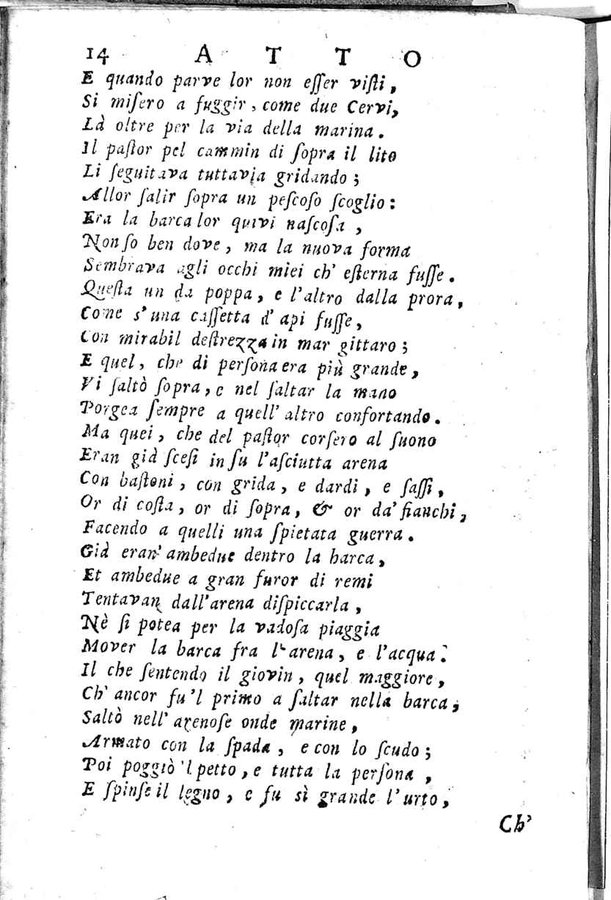 14 ATTO
E quando parve lor non eſſer viſti,
Si miſero a fuggir, come due Cervi,
Là oltre per la via della marina.
Il paſtor pel cammin di ſopra il lito
Li ſeguitava tuttavia gridando;
Allor ſalir ſopra un peſcoſo ſcoglio:
Era la barca lor quivi naſcoſa,
Non ſo ben dove, ma la nuova forma
Sembrava agli occhi miei ch' eſterna fuſſe.
Queſta un da poppa, e l'altro dalla prora,
Come s'una caſſetta d'api fuſſe,
Con mirabil deſtrezza in mar gittaro;
E quel, che di perſona era più grande,
Vi ſaltò ſopra, e nel ſaltar la mano
Porgea ſempre a quell'altro confortando.
Ma quei, che del paſtor corſero al ſuono
Eran già ſceſi in ſu l'aſciutta arena
Con baſtoni, con grida, e dardi, e ſaſſi,
Or di coſta, or di ſopra, & or da' fianchi,
Facendo a quelli una ſpietata guerra.
Già eran' ambedue dentro la barca,
Et ambedue a gran furor di remi
Tentavan dall'arena diſpiccarla,
Nè ſi potea per la vadoſa piaggia
Mover la barca fra l'arena, e l'acqua.
Il che ſentendo il giovin, quel maggiore,
Ch' ancor fu 'l primo a ſaltar nella barca,
Saltò nell' arenoſe onde marine,
Armato con la ſpada, e con lo ſcudo;
Poi poggiò 'l petto, e tutta la perſona,
E ſpinſe il legno, e fu sì grande l'urto,
Ch'